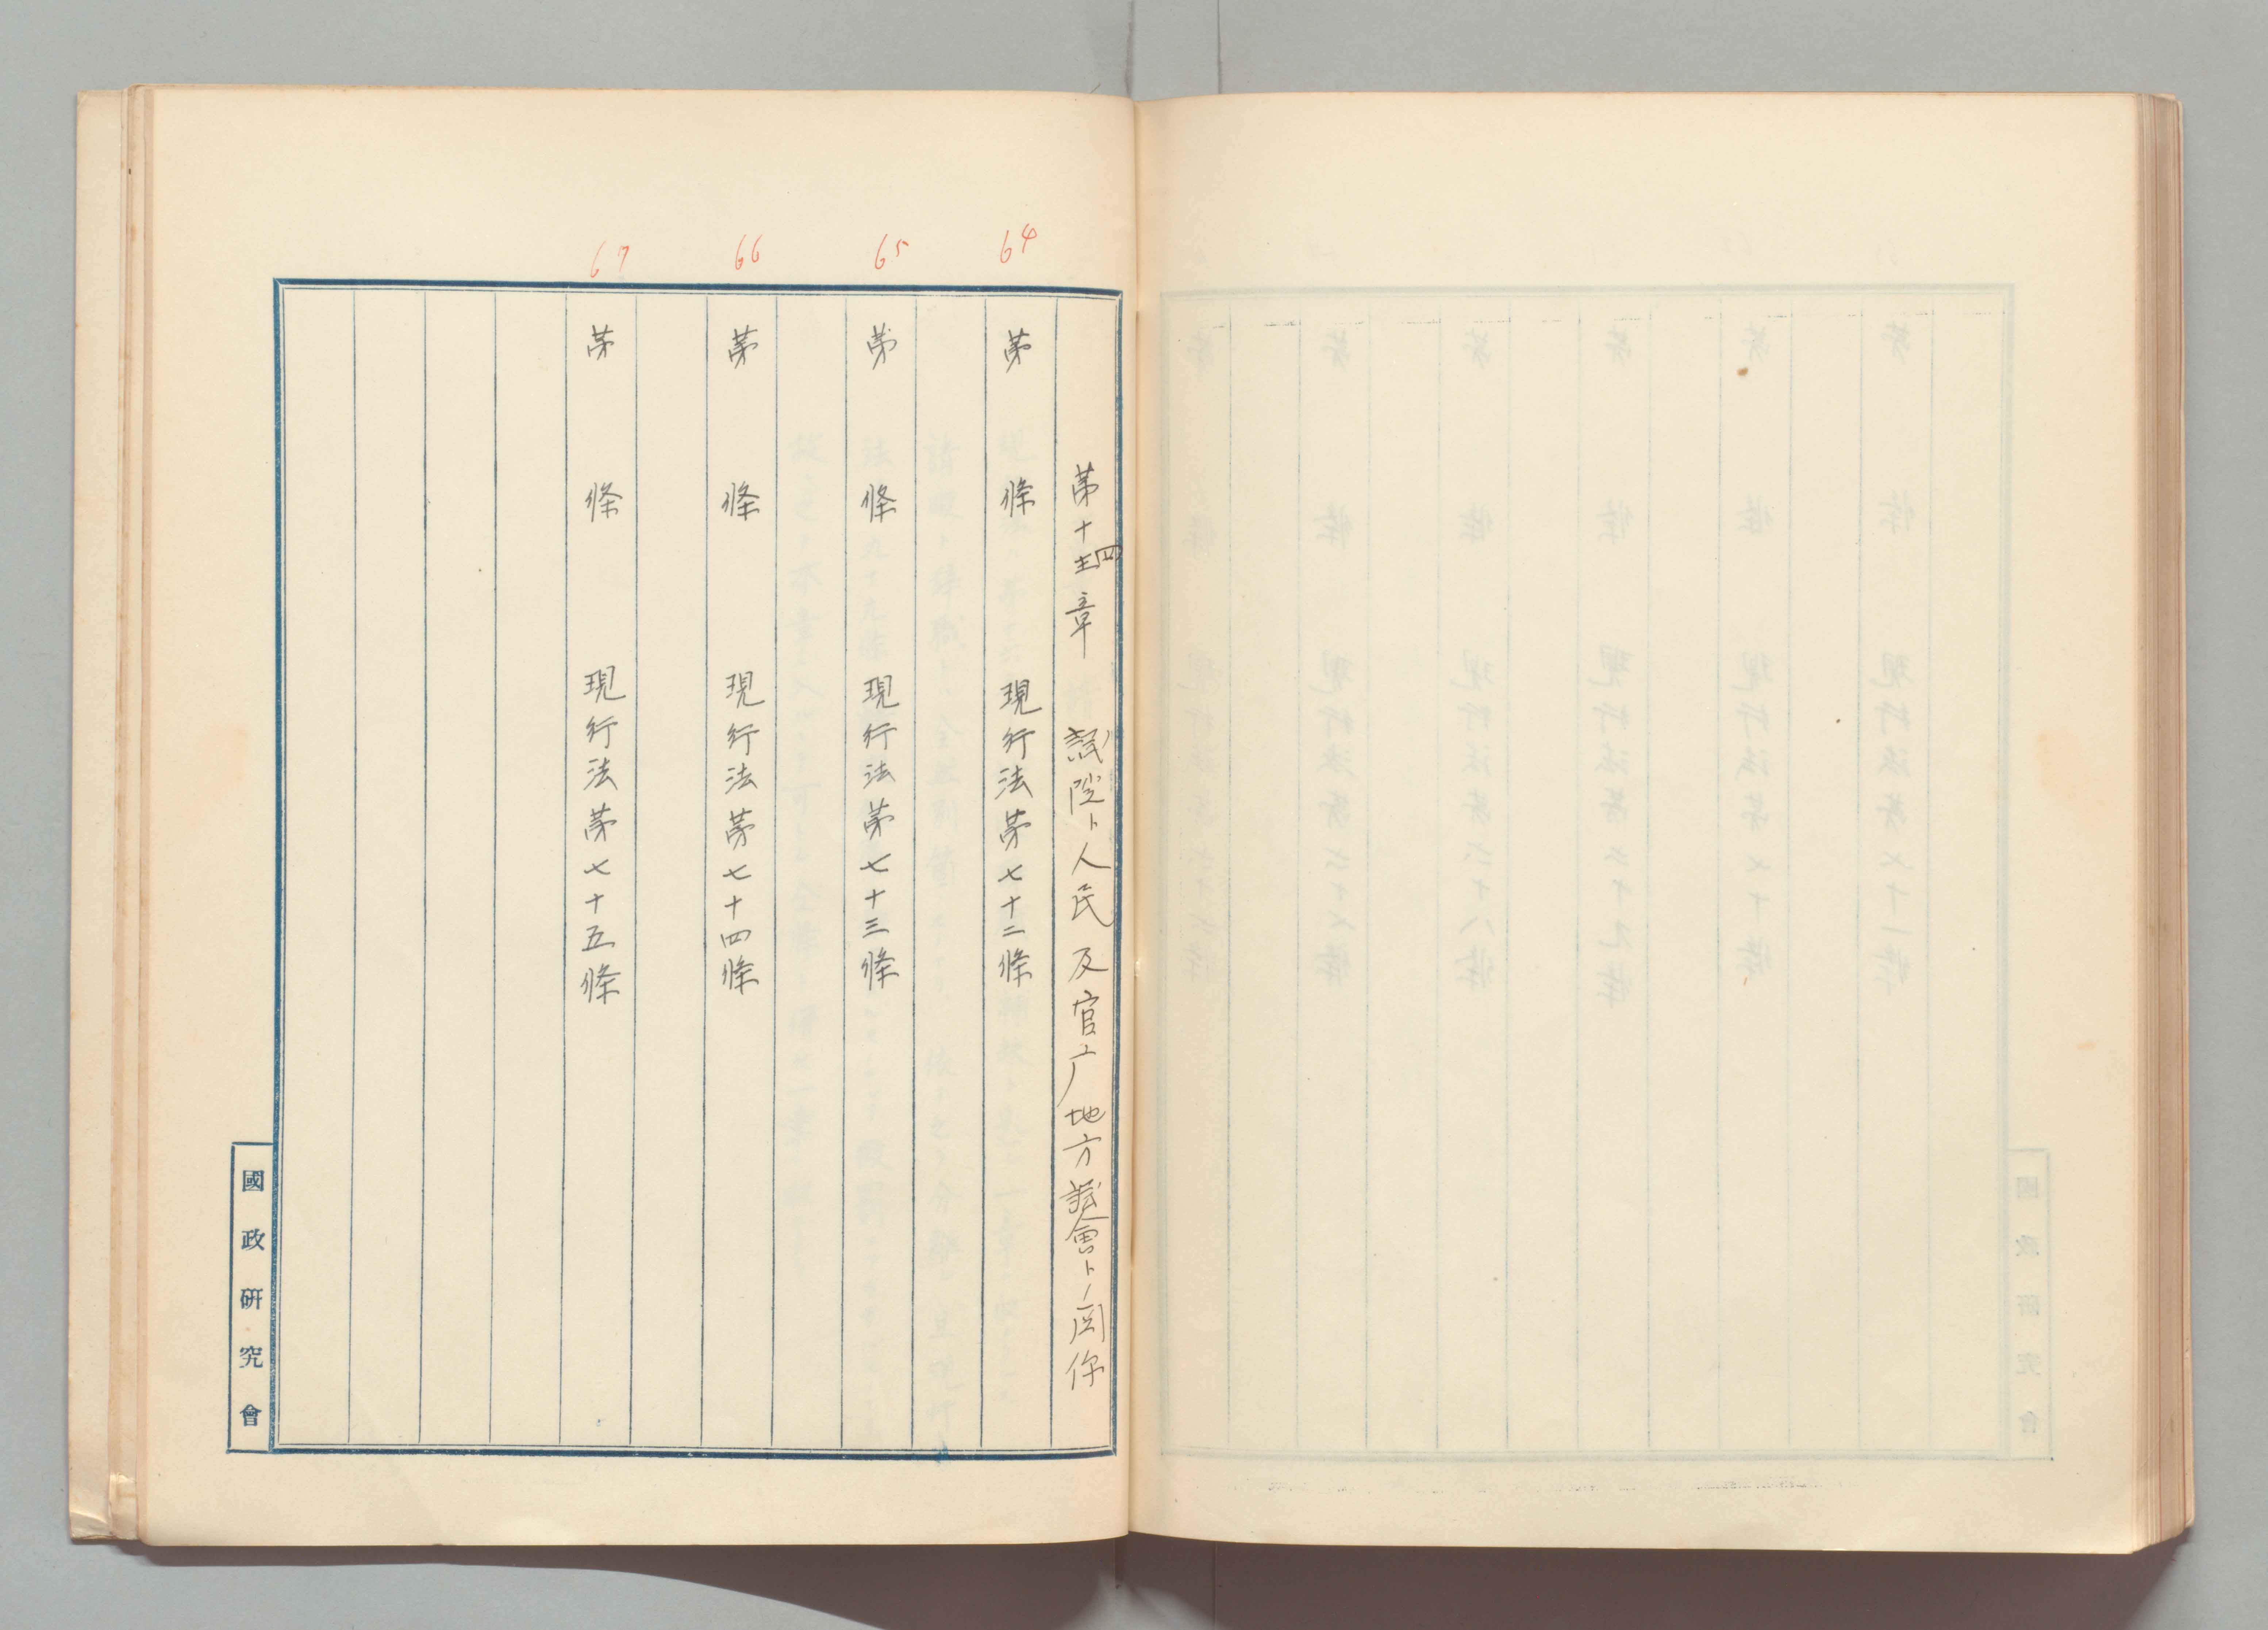 64
65
66
67
第十四章 議院ト人民及官广地方議會トノ関係
第 條 現行法第七十二條
第 條 現行法第七十三條
第 條 現行法第七十四條
第 條 現行法第七十五條
國政研究會